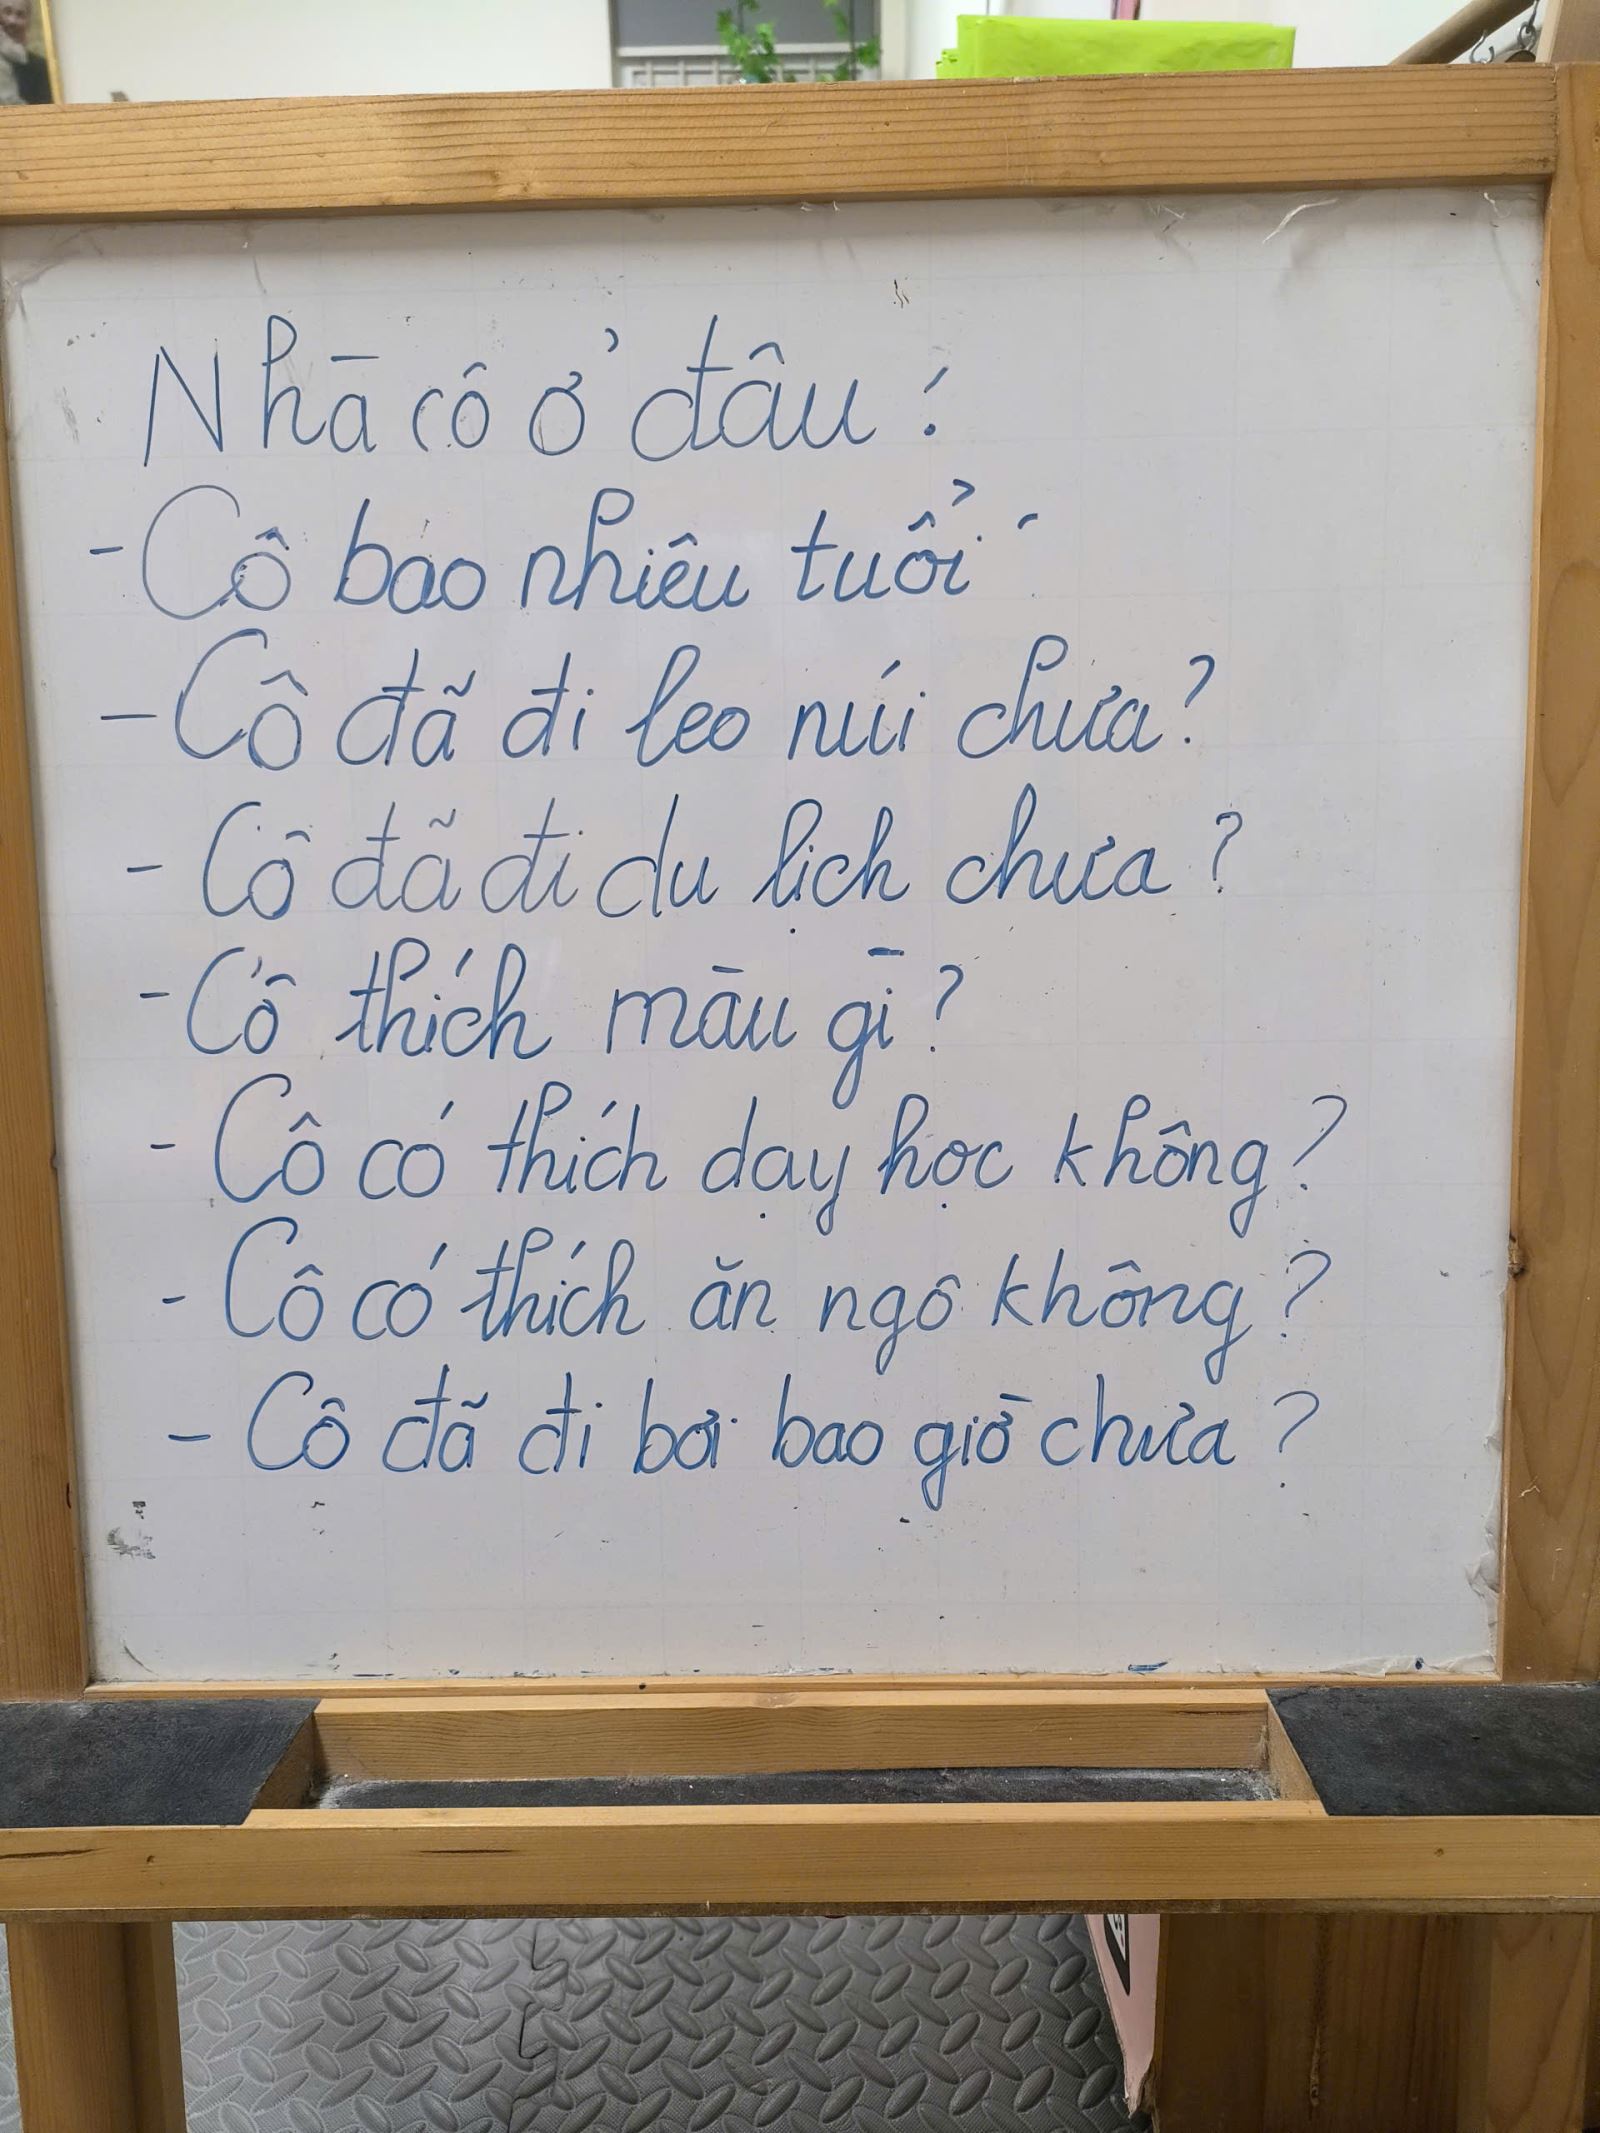 Nhà cô ở đâu?
- Cô bao nhiêu tuổi?
- Cô đã đi leo núi chưa?
- Cô đã đi du lịch chưa?
- Cô thích màu gì?
- Cô có thích dạy học không?
- Cô có thích ăn ngô không?
- Cô đã đi bơi bao giờ chưa?